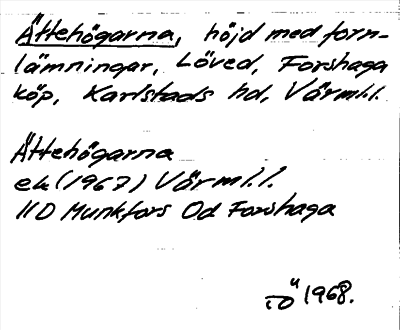 Ättehögarna, höjd med forn-
lämningar, Löved, Forshaga
köp, Karlstads hd, Värml.l.
Ättehögarna
ek (1967) Värml.l.
11D Munkfors 0d Forshaga
1968.